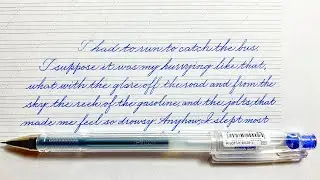 I had to run to catch the bus.
I suppose it was my hurrying like that,
what with the glare off the road and from the
sky, the reek of the gasoline, and the jolts that
made me feel so drowsy. Anyhow, I slept most